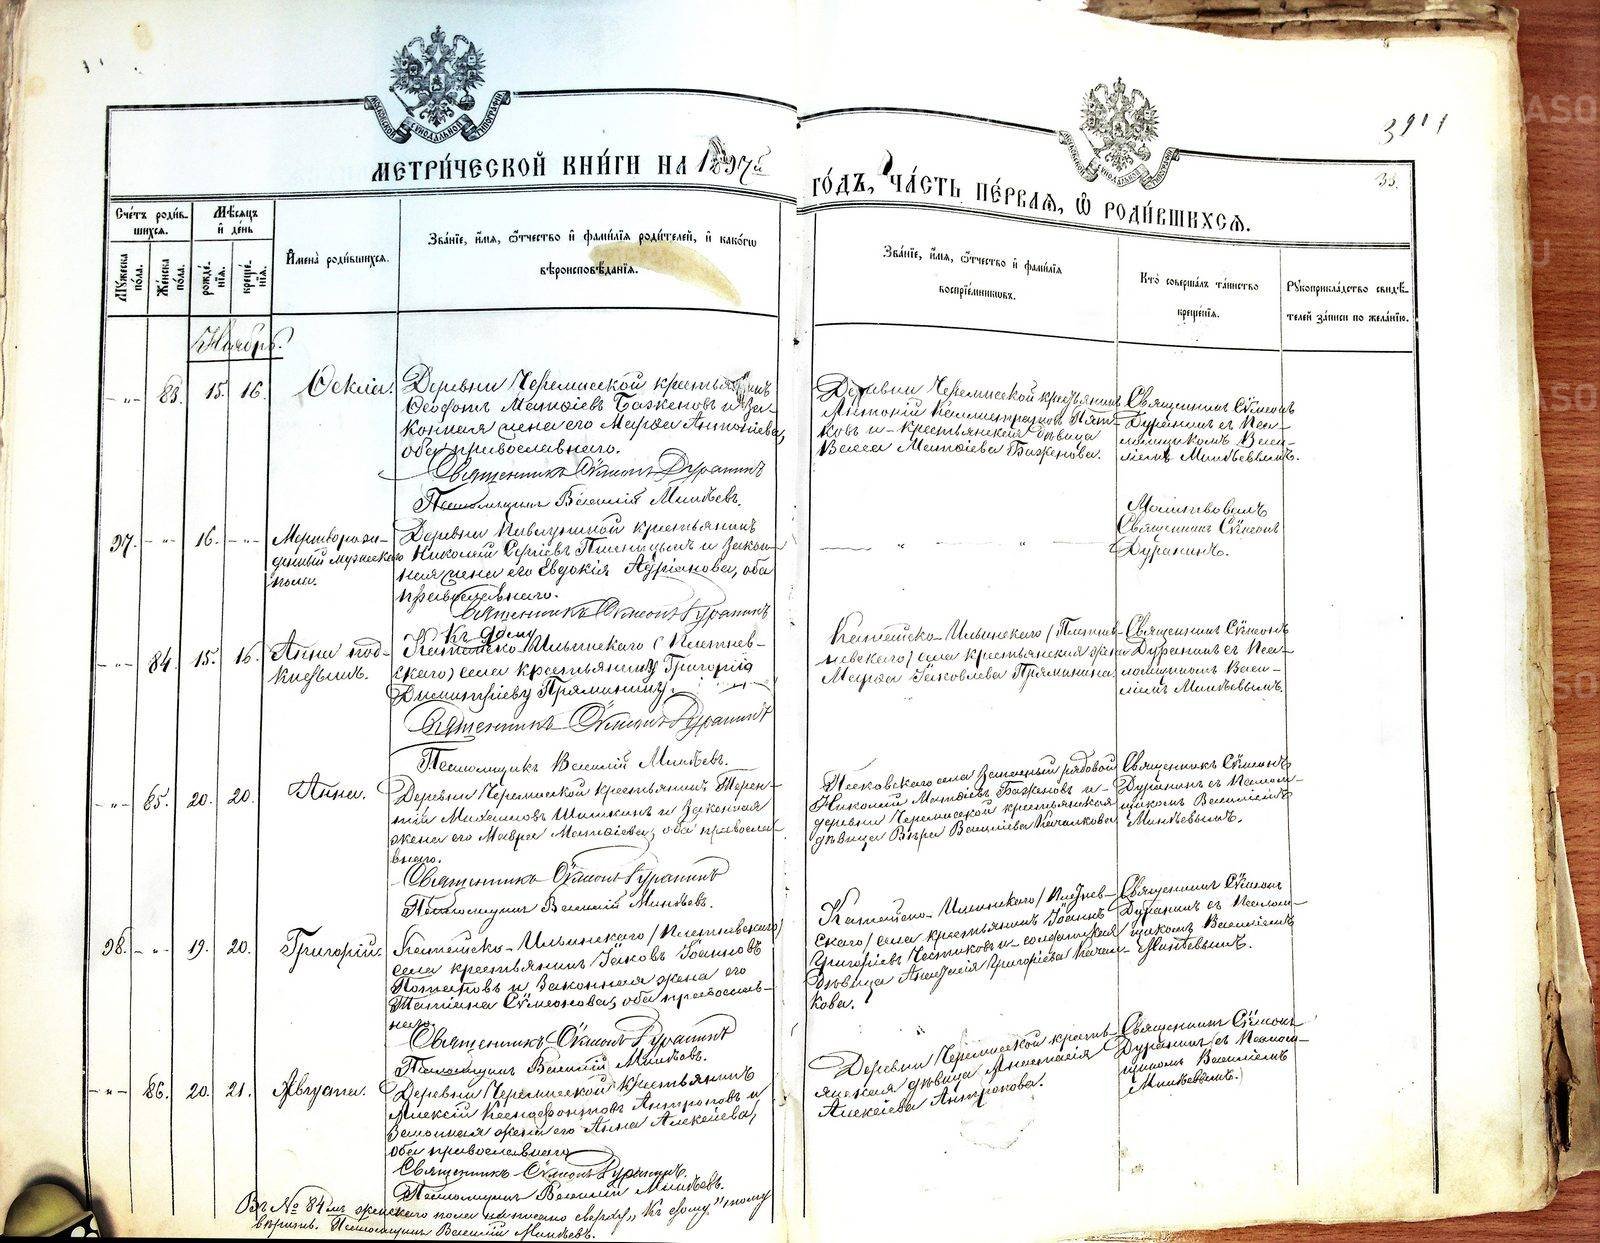 МОСКОВСКОЙ СѴНОДАЛЬНОЙ ТИПОГРАФІИ
МЕТРИ́ЧЕСКОЙ КНИ́ГИ НА 1897й
ГО́ДЪ, ЧА́СТЬ ПЕ́РВАЯ, Ѡ҆ РОДИ́ВШИХСЯ.
38.
Сче́тъ роди́вшихся.
Му́жеска по́ла.
Же́нска по́ла.
Мѣ́сяцъ и҆ де́нь
рожде́нїя.
креще́нїя.
И҆мена̀ роди́вшихся.
Зва́нїе, и҆́мя, ѻ҆́тчество и҆ фами́лїя роди́телей, и҆ како́гѡ
вѣроисповѣ́данїя.
Зва́нїе, и҆́мя, ѻ҆́тчество и҆ фами́лїя
воспрїе́мникѡвъ.
Кто̀ соверша́лъ та́инство
креще́нїя.
Рукоприкла́дство свидѣ́-
телей за́писи по жела́нїю.
Ноябрь.
-"- 83. 15. 16. Ѳекла.
Деревни Черемисской крестьянинъ
Ѳеофанъ Матѳіевъ Баженовъ и за-
конная жена его Марѳа Антоніева,
оба православнаго.
Священникъ Сѵмеонъ Дуранинъ
Псаломщикъ Василій Минѣевъ.
Деревни Черемисской крестьянинъ
Антоній Пят-
ковъ и крестьянская дѣвица
Васса Матѳіева Баженова.
Священникъ Сѵмеонъ
Дуранинъ съ Пса-
ломщикомъ Васи-
ліемъ Минѣевымъ.
37. -"- 16. -"- Мертворож-
денный мужескаго
пола.
Деревни крестьянинъ
Николай Сергіевъ и закон-
ная жена его Евдокія Адріанова, оба
православнаго.
Священникъ Сѵмеонъ Дуранинъ
Молитвовалъ
Священникъ Сѵмеонъ
Дуранинъ.
-"- 84. 15. 16. Анна под-
кидышъ.
Къ дому
Катайско-Ильинскаго (Плетнев-
скаго) села крестьянину Григорію
Димитріеву Прямичину.
Священникъ Сѵмеонъ Дуранинъ
Псаломщикъ Василій Минѣевъ.
Катайско-Ильинскаго (Плетне-
невскаго) села крестьянская жена
Марѳа Іаковлева Прямичина.
Священникъ Сѵмеонъ
Дуранинъ съ Пса-
ломщикомъ Васи-
ліемъ Минѣевымъ.
-"- 85. 20. 20. Анна.
Деревни Черемисской крестьянинъ Терен-
тій Михаиловъ Шишкинъ и законная
жена его Мавра Матѳіева, оба правосла-
внаго.
Священникъ Сѵмеонъ Дуранинъ
Псаломщикъ Василій Минѣевъ.
Песковскаго села запасный рядовой
Николай Матѳіевъ Баженовъ и
деревни Черемисской крестьянская
дѣвица Вѣра Василіева Качалкова.
Священникъ Сѵмеонъ
Дуранинъ съ Псалом-
щикомъ Василіемъ
Минѣевымъ.
38. -"- 19. 20. Григорій.
Катайско-Ильинскаго (Плетневскаго)
села крестьянинъ Іаковъ Іоанновъ
Потаповъ и законная жена его
Татіана Сѵмеонова, оба православ-
наго.
Священникъ Сѵмеонъ Дуранинъ
Псаломщикъ Василій Минѣевъ.
Катайско-Ильинскаго (Плетнев-
скаго) села крестьянинъ Іоаннъ
Григоріевъ и солдатская
дѣвица Анастасія Григоріева Качал-
кова.
Священникъ Сѵмеонъ
Дуранинъ съ Псалом-
щикомъ Василіемъ
Минѣевымъ.
-"- 86. 20. 21. Августа.
Деревни Черемисской крестьянинъ
Алексій Ксенофонтовъ Антроповъ и
законная жена его Анна Алексіева,
оба православнаго
Священникъ Сѵмеонъ Дуранинъ.
Псаломщикъ Василій Минѣевъ.
Деревни Черемисской кресть-
янская дѣвица Анастасія
Алексіева Антропова.
Священникъ Сѵмеонъ
Дуранинъ съ Псалом-
щикомъ Василіемъ
Минѣевымъ.
Въ № 84мъ женскаго пола написано сверху "Къ дому" тому
вѣрить. Псаломщикъ Василій Минѣевъ.